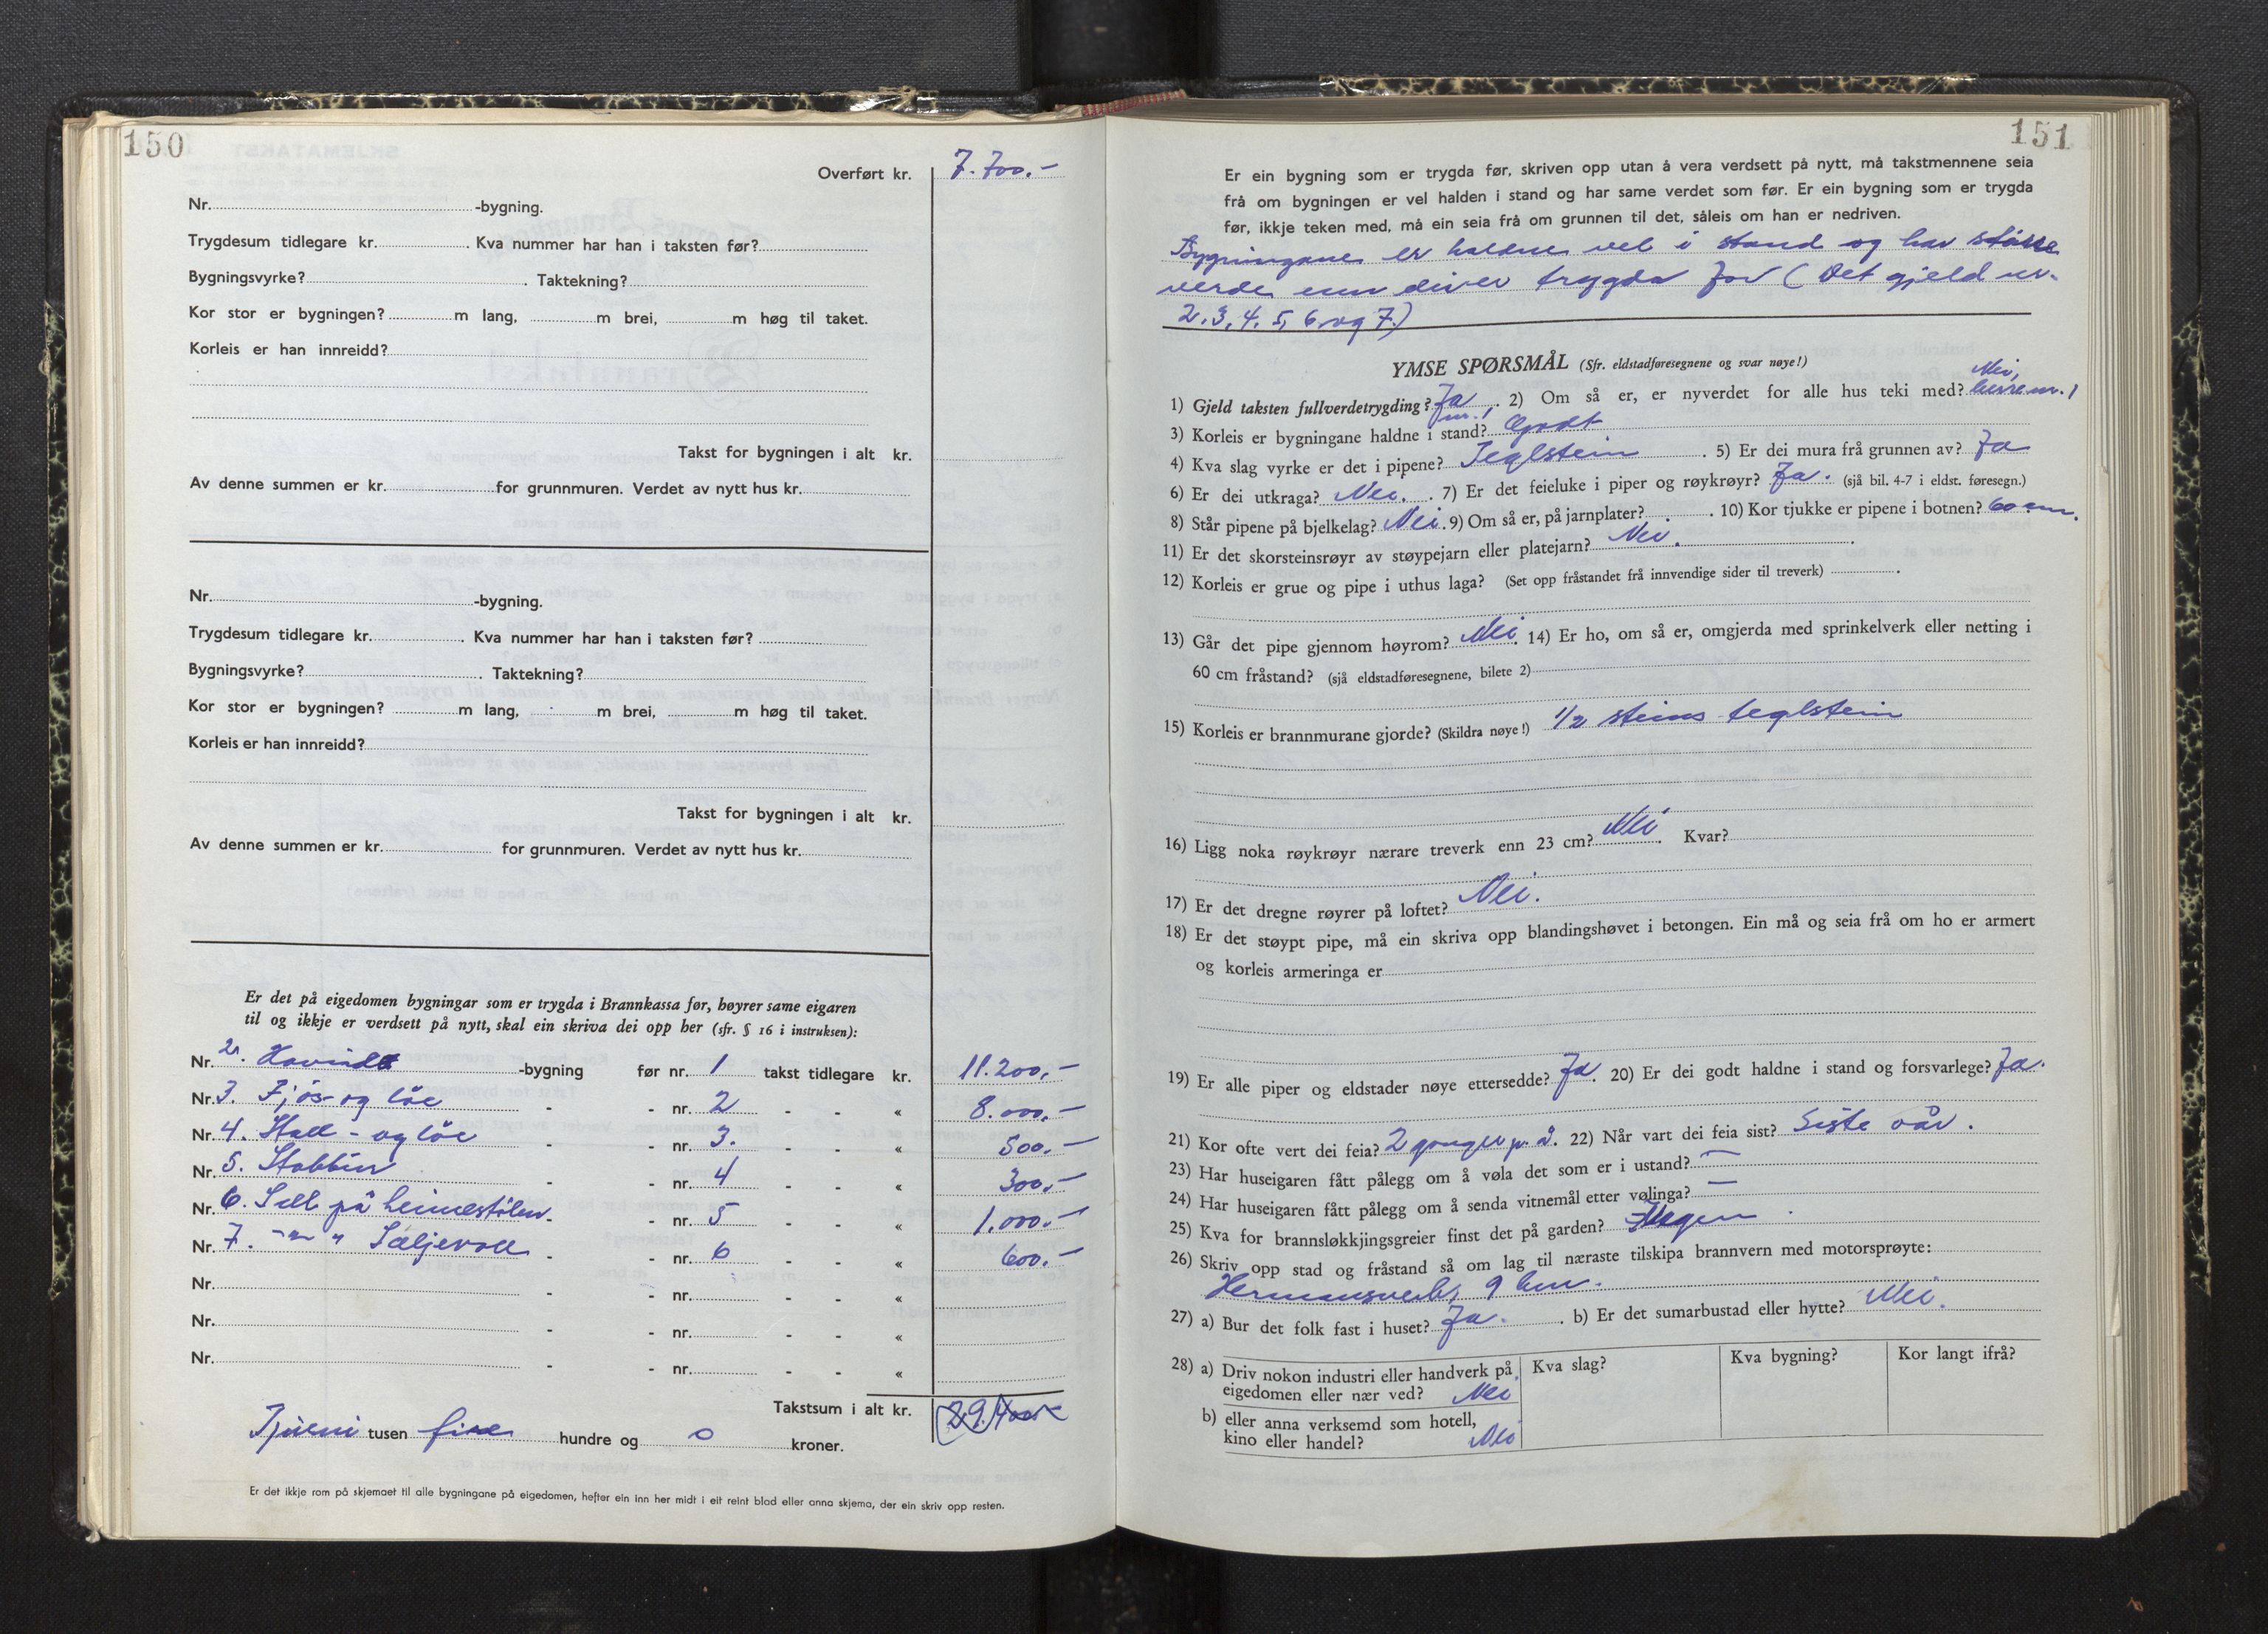 150
Overført kr. 7.700.-
Nr. -bygning.
Trygdesum tidlegare kr. . Kva nummer har han i taksten før?
Bygningsvyrke? . Taktekning?
Kor stor er bygningen? m lang, m brei, m høg til taket.
Korleis er han innreidd?
Takst for bygningen i alt kr.
Av denne summen er kr. for grunnmuren. Verdet av nytt hus kr.
Nr. -bygning.
Trygdesum tidlegare kr. . Kva nummer har han i taksten før?
Bygningsvyrke? . Taktekning?
Kor stor er bygningen? m lang, m brei, m høg til taket.
Korleis er han innreidd?
Takst for bygningen i alt kr.
Av denne summen er kr. for grunnmuren. Verdet av nytt hus kr.
Er det på eigedomen bygningar som er trygda i Brannkassa før, høyrer same eigaren
til og ikkje er verdsett på nytt, skal ein skriva dei opp her (sfr. § 16 i instruksen):
Nr. 2. -bygning før nr. 1 takst tidlegare kr. 11.200.-
Nr. 3. Fjös- og löe - - nr. 2 - - « 8.000.-
Nr. 4. Stall- og löe - - nr. 3. - - « 500.-
Nr. 5. Stabbur - - nr. 4 - - « 300.-
Nr. 6. Sell på heimestölen - - nr. 5 - - « 1.000.-
Nr. 7. -"- " Säljevoll - - nr. 6 - - « 600.-
Nr. - - nr. - - «
Nr. - - nr. - - «
Nr. - - nr. - - «
Takstsum i alt kr. 29.400.-
Tjueni tusen fire hundre og 0 kroner.
Er det ikkje rom på skjemaet til alle bygningane på eigedomen, hefter ein inn her midt i eit reint blad eller anna skjema, der ein skriv opp resten.
151
Er ein bygning som er trygda før, skriven opp utan å vera verdsett på nytt, må takstmennene seia
frå om bygningen er vel halden i stand og har same verdet som før. Er ein bygning som er trygda
før, ikkje teken med, må ein seia frå om grunnen til det, såleis om han er nedriven.
Bygningane er haldne vel i stand og har större
verde enn dei er trygda for (Det gjeld nr.
2, 3, 4, 5, 6 og 7.)
YMSE SPØRSMÅL (Sfr. eldstadføresegnene og svar nøye!)
1) Gjeld taksten fullverdetrygding? Ja nr. 1, . 2) Om så er, er nyverdet for alle hus teki med? Nei, berre nr. 1
3) Korleis er bygningane haldne i stand? Godt
4) Kva slag vyrke er det i pipene? Teglstein . 5) Er dei mura frå grunnen av? Ja
6) Er dei utkraga? Nei. . 7) Er det feieluke i piper og røykrøyr? Ja. (sjå bil. 4-7 i eldst. føresegn.)
8) Står pipene på bjelkelag? Nei. 9) Om så er, på jarnplater? . 10) Kor tjukke er pipene i botnen? 60 cm.
11) Er det skorsteinsrøyr av støypejarn eller platejarn? Nei. .
12) Korleis er grue og pipe i uthus laga? (Set opp fråstandet frå innvendige sider til treverk) .
13) Går det pipe gjennom høyrom? Nei. 14) Er ho, om så er, omgjerda med sprinkelverk eller netting i
60 cm fråstand? (sjå eldstadføresegnene, bilete 2)
15) Korleis er brannmurane gjorde? (Skildra nøye!) 1/2 steins teglstein
16) Ligg noka røykrøyr nærare treverk enn 23 cm? Nei . Kvar?
17) Er det dregne røyrer på loftet? Nei.
18) Er det støypt pipe, må ein skriva opp blandingshøvet i betongen. Ein må og seia frå om ho er armert
og korleis armeringa er
19) Er alle piper og eldstader nøye ettersedde? Ja . 20) Er dei godt haldne i stand og forsvarlege? Ja.
21) Kor ofte vert dei feia? 2 gonger p. å. 22) Når vart dei feia sist? Siste vår.
23) Har huseigaren fått pålegg om å vøla det som er i ustand? —
24) Har huseigaren fått pålegg om å senda vitnemål etter vølinga? —
25) Kva for brannsløkkjingsgreier finst det på garden? Ingen .
26) Skriv opp stad og fråstand så om lag til næraste tilskipa brannvern med motorsprøyte:
Hermansverk, 9 km.
27) a) Bur det folk fast i huset? Ja. . b) Er det sumarbustad eller hytte? Nei.
28) a) Driv nokon industri eller handverk på
eigedomen eller nær ved? Nei
Kva slag? Kva bygning? Kor langt ifrå?
b) eller anna verksemd som hotell,
kino eller handel? Nei